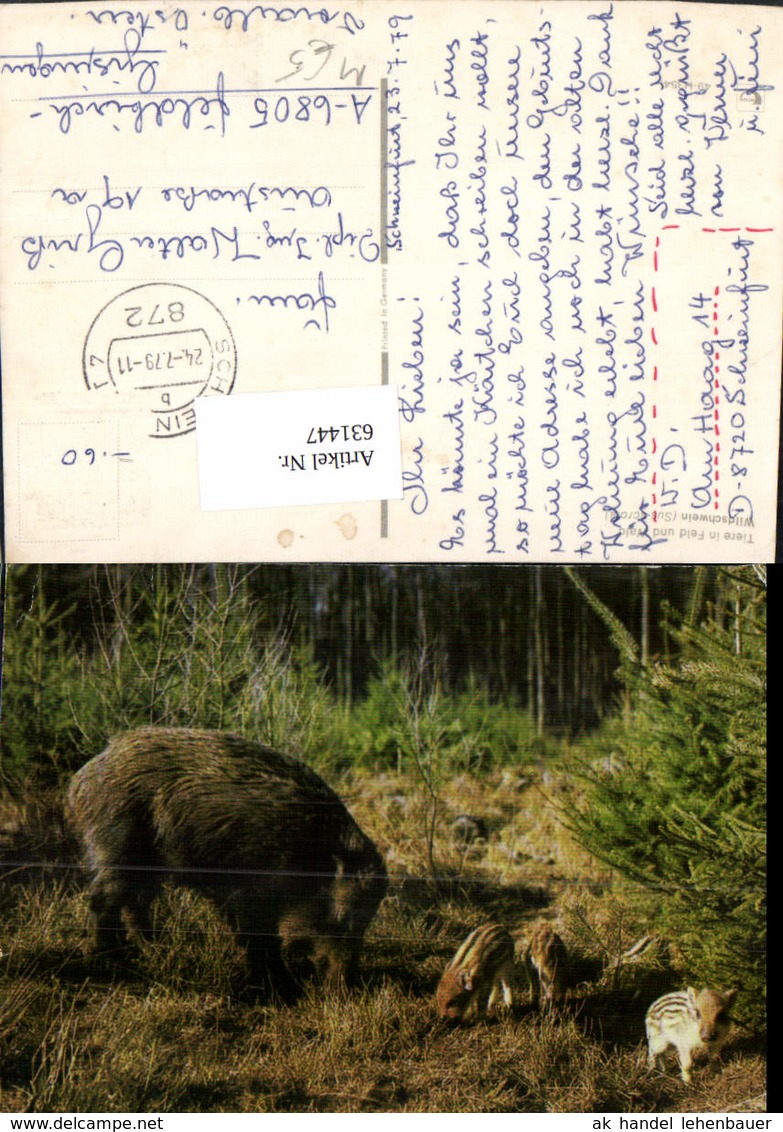 Schweinfurt, 23.7.79
Ihr Lieben!
Es könnte ja sein, daß Ihr uns
mal ein Kärtchen schreiben wollt,
so möchte ich Euch doch unsere
neue Adresse angeben, den Geburts-
tag habe ich noch in der alten
Wohnung erlebt, habt herzl. Dank
für Eure lieben Wünsche!!
Seid alle recht
herzl. gegrüßt
von Werner
u.
W. D.
Am Haag 14
D-8720 Schweinfurt
Fam.
Dipl. Ing. Walter
19a
A-6805 Feldkirch-
Gisingen
Vorarlb. Österr.
M65
SCHWEINFURT 1
24.-7.79-11
b
872
-.60
Printed in Germany
Tiere in Feld und Wald
Wildschwein (Sus scrofa)
Artikel Nr.
631447
ak handel lehenbauer